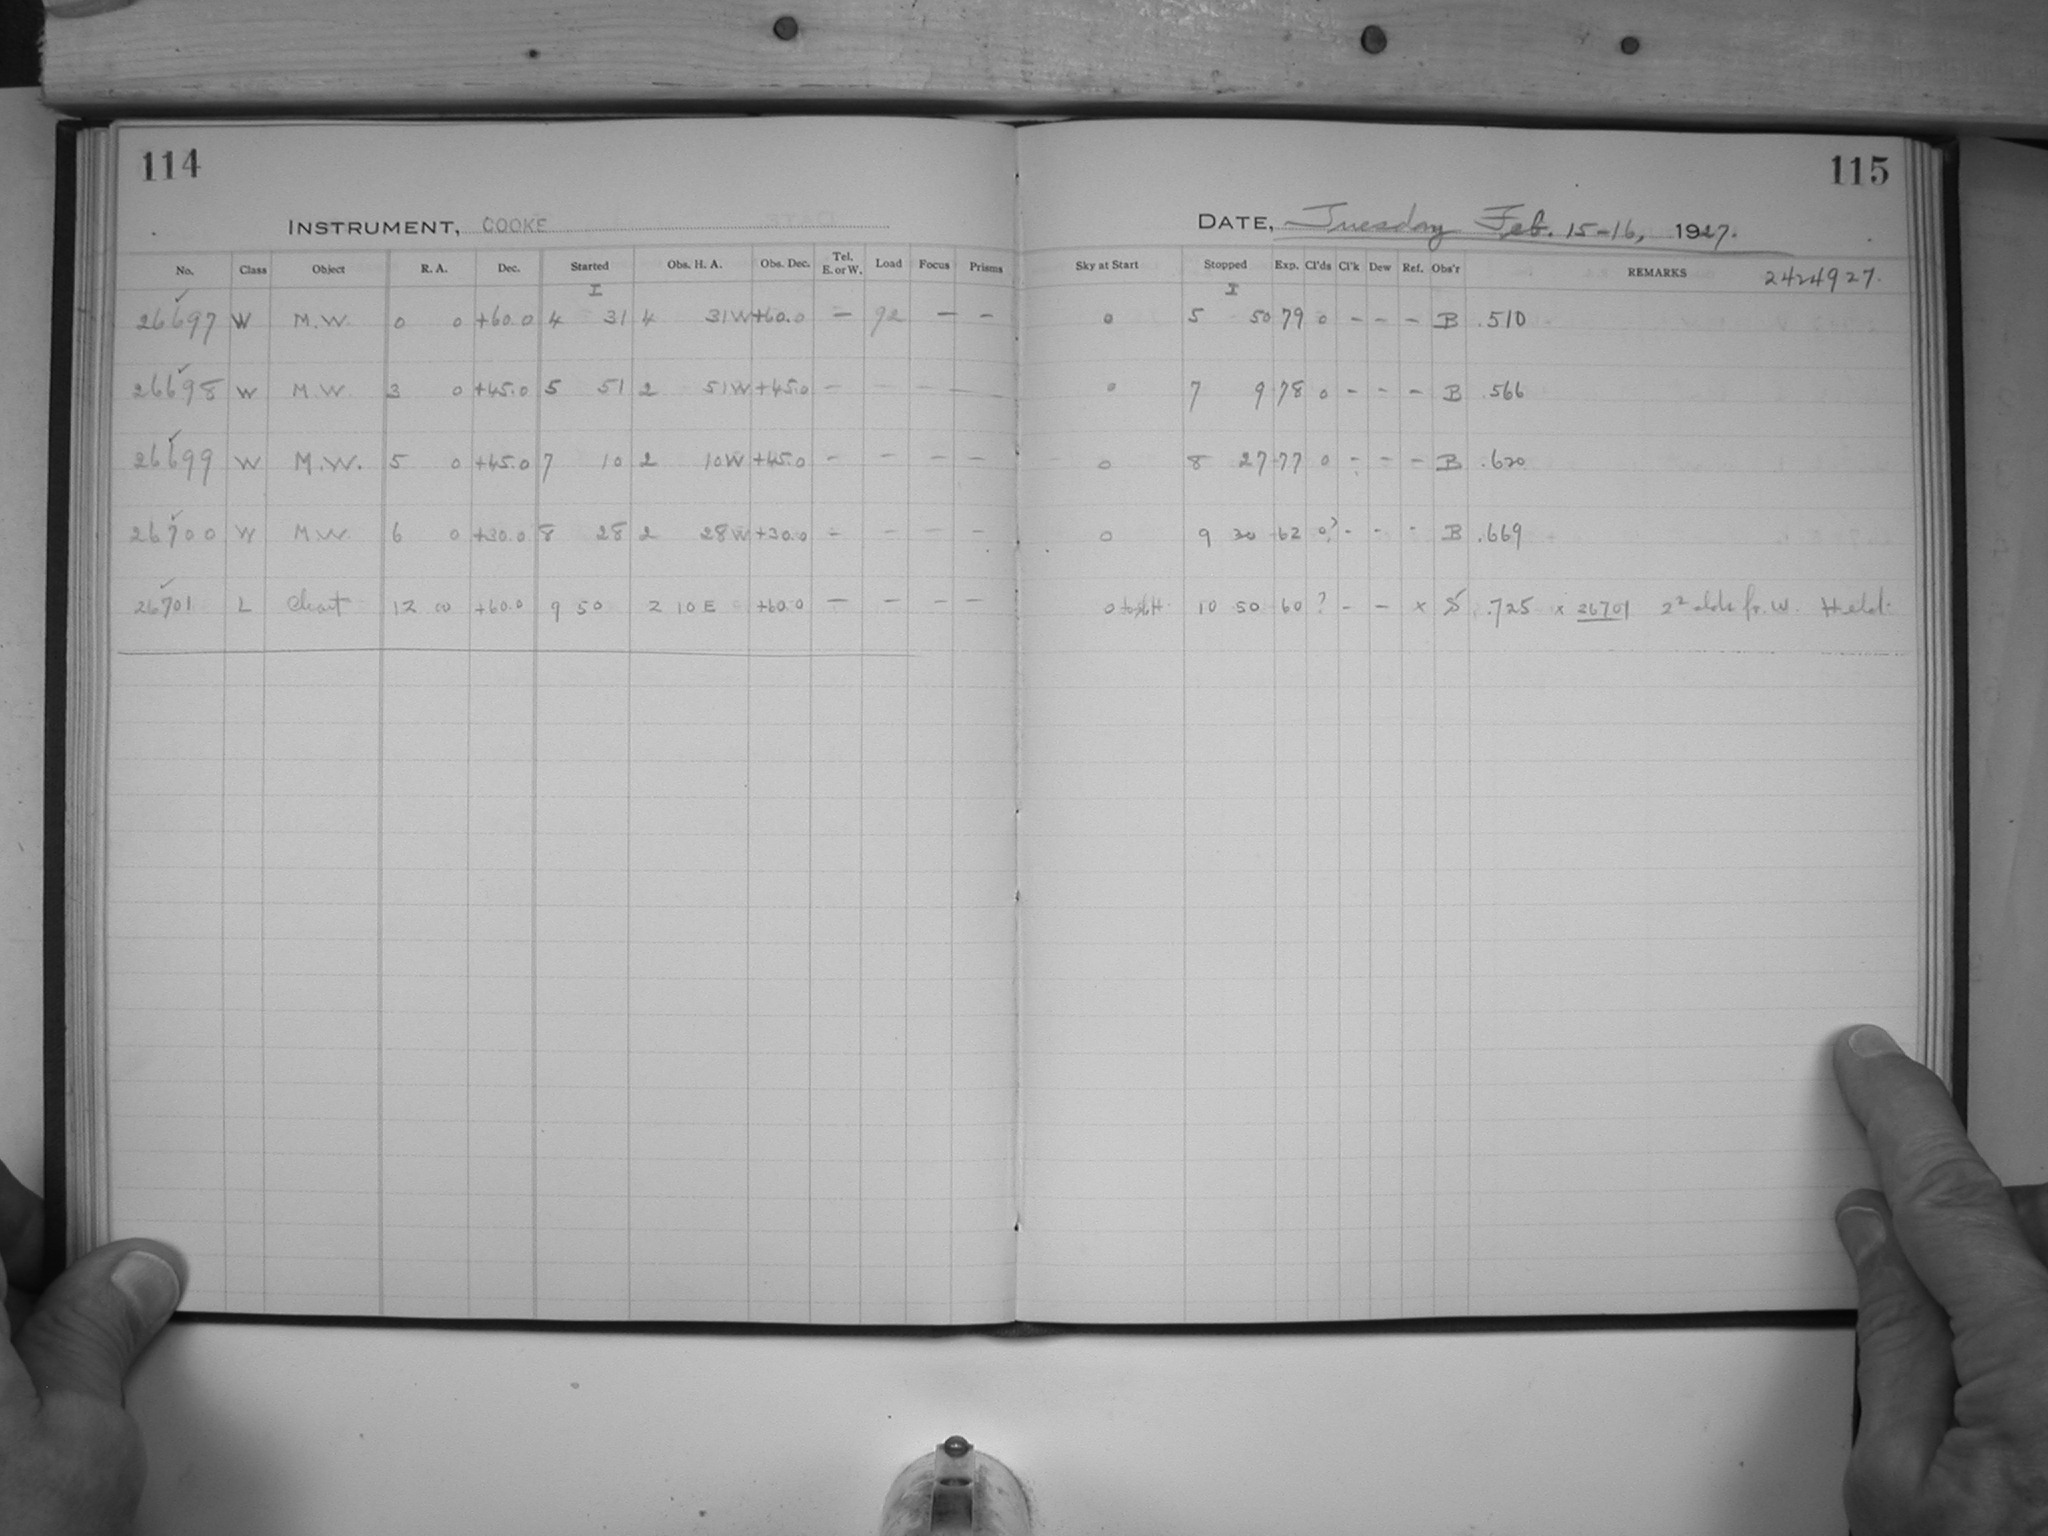 114
INSTRUMENT, COOKE
No. Class Object R. A. Dec. Started Obs. H. A. Obs. Dec. Tel. E. or W. Load Focus Prisms
I
26697 W M.W. 0 0 +60.0 4 31 4 31W +60.0 — 92 — —
26698 W M.W. 3 0 +45.0 5 51 2 51W +45.0 — — — —
26699 W M.W. 5 0 +45.0 7 10 2 10W +45.0 — — — —
26700 W M.W. 6 0 +30.0 8 28 2 28W +30.0 — — — —
26701 L Chart 12 00 +60.0 9 50 2 10 E +60.0 — — — —
115
DATE, Tuesday Feb. 15-16, 1927.
Sky at Start Stopped Exp. Cl'ds Cl'k Dew Ref. Obs'r REMARKS 2424927.
I
0 5 50 79 0 - - - B .510
0 7 9 78 0 - - - B .566
0 8 27 77 0 - - - B .620
0 9 30 62 0? - - - B .669
0 10 50 60 ? - - x S .725 x 26701 fr. W. Held.